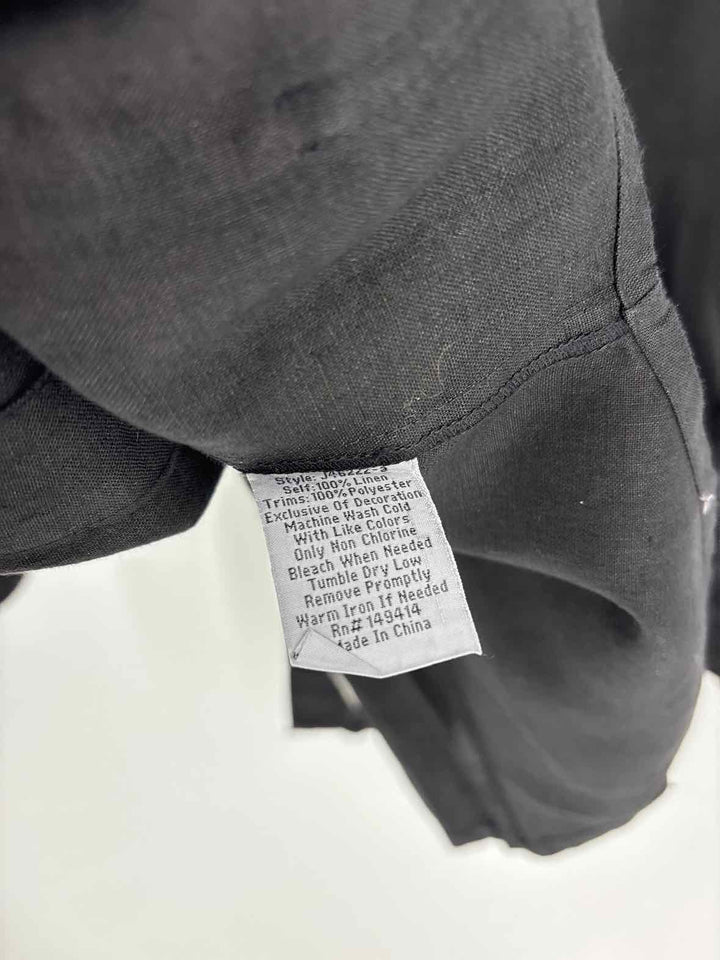 Style: J46222-3
Self:100% Linen
Trims:100% Polyester
Exclusive Of Decoration
Machine Wash Cold
With Like Colors
Only Non Chlorine
Bleach When Needed
Tumble Dry Low
Remove Promptly
Warm Iron If Needed
Rn# 149414
ade In China